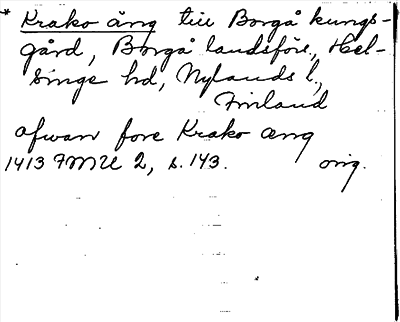 * Krako äng till Borgå kungs-
gård, Borgå landsförs., Hel-
singe hd, Nylands l.,
Finland
afwan fore Krako æng
1413 FMU 2, s. 143. orig.